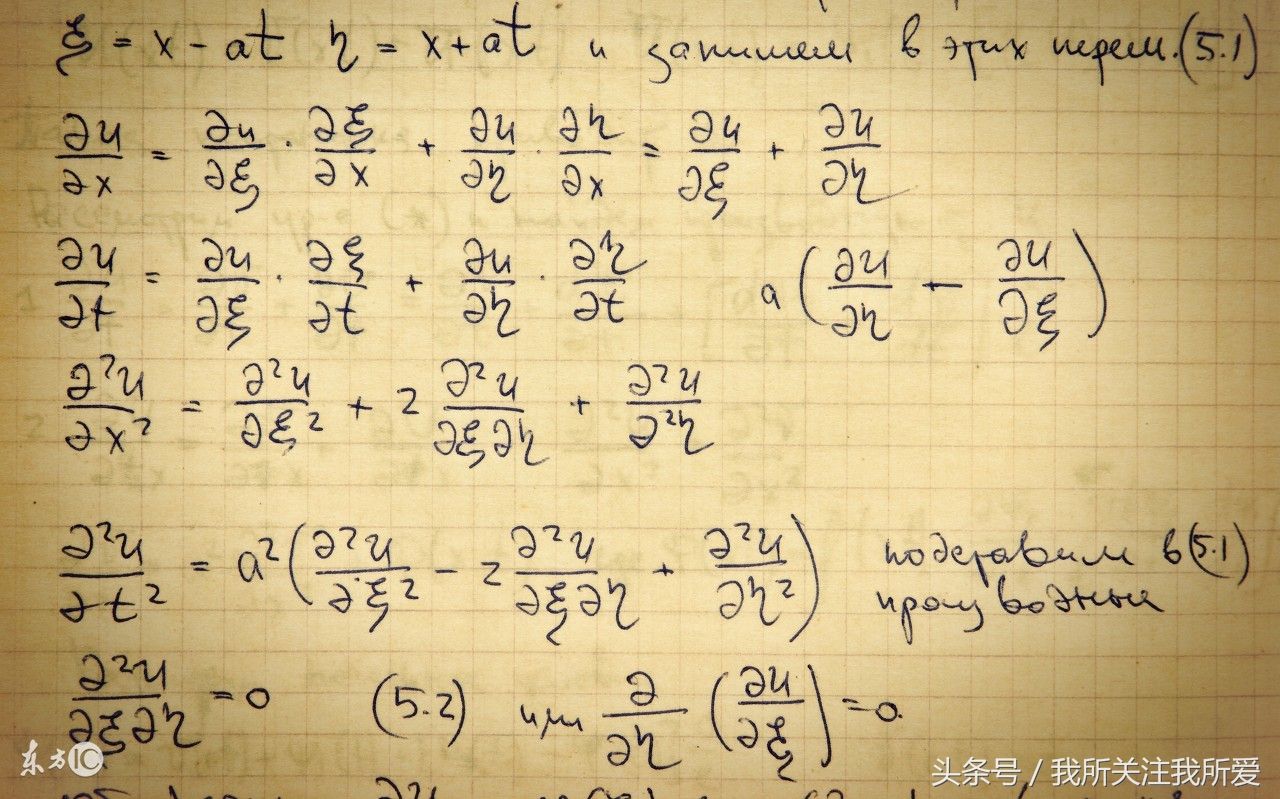 ξ = x − at η = x + at и запишем в этих перем. (5.1)
∂u/∂x = ∂u/∂ξ · ∂ξ/∂x + ∂u/∂η · ∂η/∂x = ∂u/∂ξ + ∂u/∂η
∂u/∂t = ∂u/∂ξ · ∂ξ/∂t + ∂u/∂η · ∂η/∂t a(∂u/∂η − ∂u/∂ξ)
∂²u/∂x² = ∂²u/∂ξ² + 2 ∂²u/∂ξ∂η + ∂²u/∂²η
∂²u/∂t² = a²(∂²u/∂ξ² − 2 ∂²u/∂ξ∂η + ∂²u/∂η²) подставим в (5.1)
производные
∂²u/∂ξ∂η = 0 (5.2) или ∂/∂η (∂u/∂ξ) = 0.
东方IC
头条号 / 我所关注我所爱